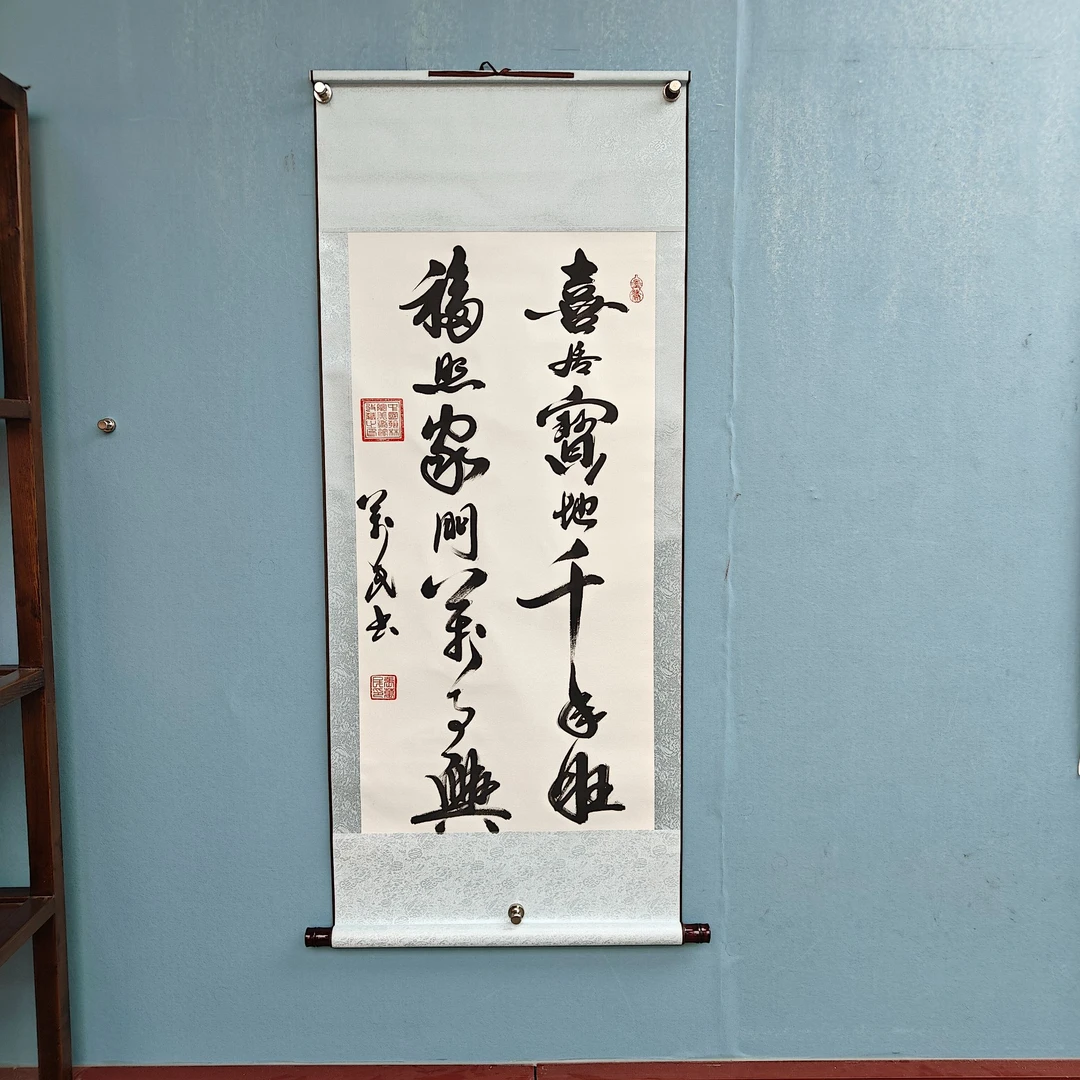 喜居寶地千年旺
福照家門萬事興
萬民書